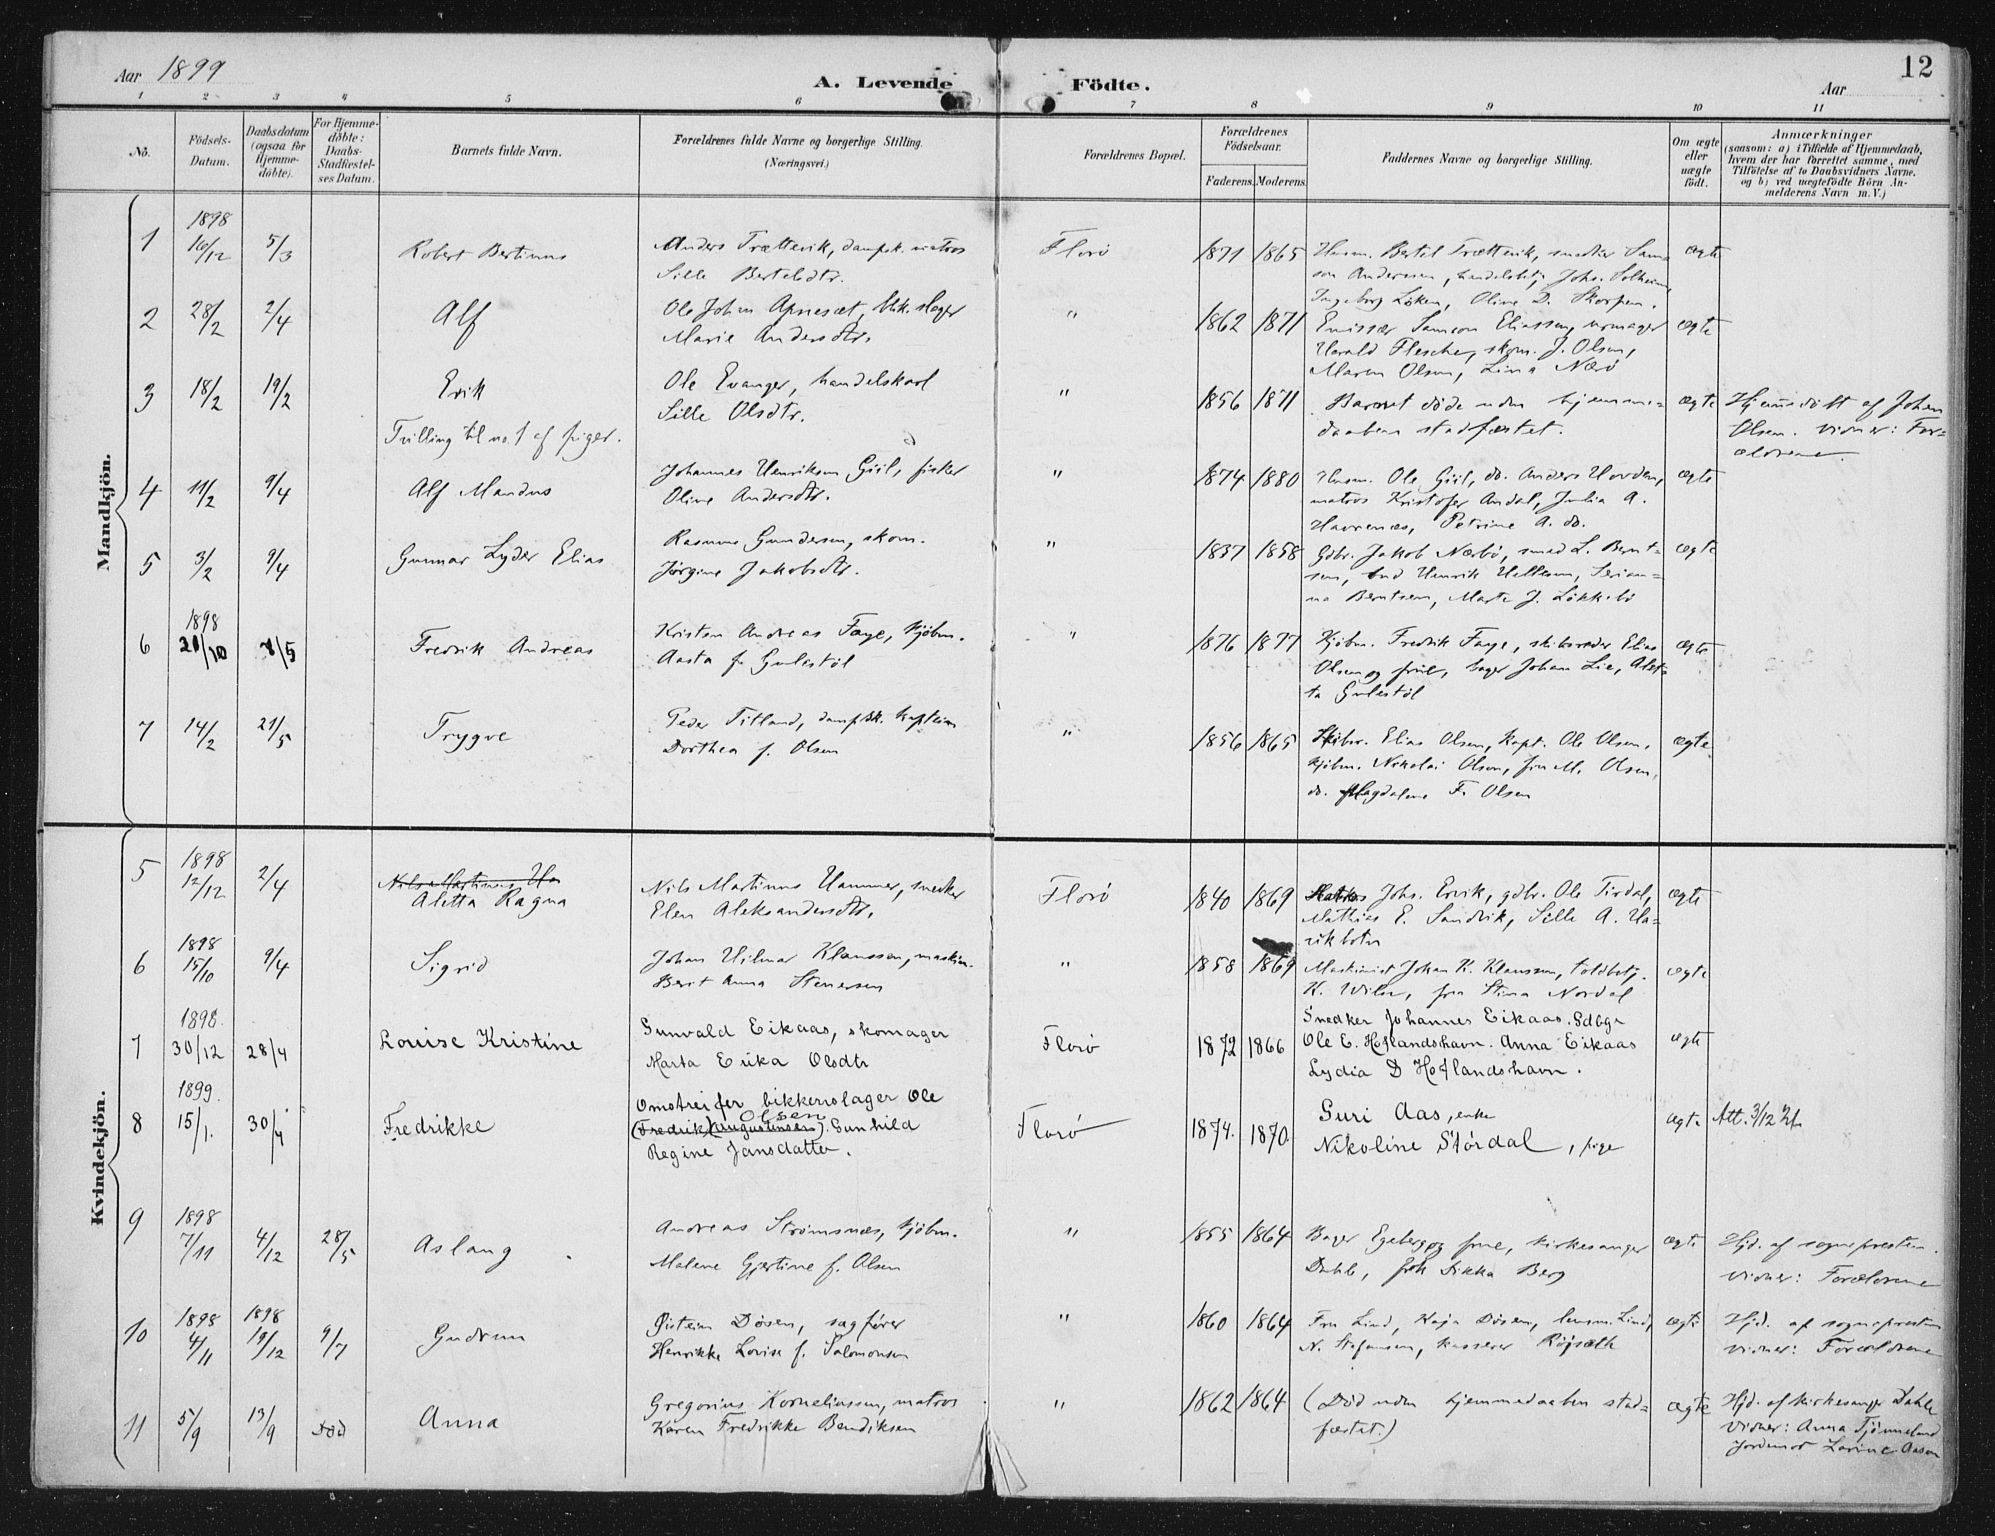 Aar 1899
A. Levende Födte.
Aar
12
1 2 3 4 5 6 7 8 9 10 11
No.
Födsels-Datum.
Daabsdatum (ogsaa for Hjemme-döbte).
For Hjemme-döbte: Daabs-Stadfæstel-ses Datum.
Barnets fulde Navn.
Forældrenes fulde Navne og borgerlige Stilling.
(Næringsvei.)
Forældrenes Bopæl.
Forældrenes Födselsaar.
Faderens. Moderens.
Faddernes Navne og borgerlige Stilling.
Om ægte eller uægte födt.
Anmærkninger
(saasom: a) i Tilfælde af Hjemmedaab,
hvem der har forrettet samme, med
Tilföielse af to Daabsvidners Navne,
og b) ved uægtefödte Börn An-
melderens Navn m.V.)
Mandkjön.
1 1898 16/12 5/3 Robert Bertinus
Anders Trættevik, dampsk. matros
Sille Berteldtr.
Florø 1871 1865
Husm. Bertel Trættevik, snedker Sam-
son Andersen, handelsbetj. Johs. Solheim,
Ingeborg Løken, Oline D. Skorpen.
ægte
2 28/2 2/4 Alf
Ole Johan Apnesæt, blik.slager
Marie Andersdtr.
" 1862 1871
Emissær Samson Eliassen, urmager
Harald Flesche, skom. J. Olsen,
Maren Olsen, Lina Nærø
ægte
3 18/2 19/2 Erik
Tvilling til no. 1 af piger.
Ole Evanger, handelskarl
Sille Olsdtr.
" 1856 1871
Barnet døde uden hjemme-
daaben stadfæstet.
ægte
Hjemmedøbt af Johan
Olsen. Vidner: For-
ældrene
4 11/2 9/4 Alf Mandus
Johannes Henriksen Giil, fisker
Oline Andersdtr.
" 1874 1880
Husm. Ole Giil, do. Anders Hovden,
matros Kristofer Andal, Julia A.
Havrenes, Petrine A. do.
ægte
5 3/2 9/4 Gunnar Lyder Elias
Rasmus Gundersen, skom.
Jørgine Jakobsdtr.
" 1837 1858
Gdbr. Jakob Nærbø, smed L. Bernt-
sen, Henrik Helleseen, Serian-
na Berntsen, Marta J. Løkkebø
ægte
6 1898 20/10 7/5 Fredrik Andreas
Kristen Andreas Faye, kjøbm.
Aasta f. Gulestøl
" 1876 1877
Kjøbm. Fredrik Faye, skibsreder Elias
Olsen og frue, bager Johan Lie, Alet-
ta Gulestøl
ægte
7 14/2 21/5 Trygve
Peder Titland, dampsk. kaptein
Dorthea f. Olsen
" 1856 1865
Skibsr. Elias Olsen, kapt. Ole Olsen,
kjøbm. Nikolai Olsen, fru M. Olsen,
do. Magdalene F. Olsen
ægte
Kvindekjön.
5 1898 12/12 2/4 Nils Martinus Ha
Aletta Ragna
Nils Martinus Hammer, snedker
Elen Aleksandersdtr.
Florø 1840 1869
Matros Johs. Ervik, gdbr. Ole Tirdal,
Mathias E. Sandvik, Sille A. Ha-
vikbotn
ægte
6 1898 15/10 9/4 Sigrid
Johan Hilmar Klaussen, maskin.
Berit Anna Stenersen
" 1858 1869
Maskinist Johan K. Klaussen, toldbetj.
K. Wiler, fru Stina Nordal
ægte
7 1898. 30/12 28/4 Louise Kristine
Gunvald Eikaas, skomager
Marta Erika Olsdtr
Florø 1872 1866
Snedker Johannes Eikaas. Gdbgr
Ole E. Hoflandshavn. Anna Eikaas
Lydia D Hoflandshavn.
ægte
8 1899. 15/1. 30/4 Fredrikke
Omstreifer blikkenslager Ole
Olsen
(Fredrik) (Augustinsen). Gunhild
Regine Jansdatter.
Florø 1874. 1870.
Guri Aas, enke
Nikoline Stórdal, pige
ægte Att. 3/12 21.
9 1898 7/11 4/12 28/5 Aslaug
Andreas Strømsnæs, kjøbm.
Malene Gjertine f. Olsen
" 1855 1864
Bager Egeberg og frue, kirkesanger
Dahle, frk Dikka Berg
ægte
Hjd. af sognepresten.
Vidner: Forældrene
10 1898 4/11 1898 19/12 9/7 Gudrun
Øistein Døsen, sagfører
Henrikke Lovise f. Salomonsen
" 1860 1864
Fru Lind, Kaja Døsen, lensm. Lind,
N. Stefansen, kasserer Røjsæth
ægte
Hjd. af sognepresten
Vidner: Forældrene
11 5/9 13/9 død Anna
Gregorius Korneliussen, matros
Karen Fredrikke Bendiksen
" 1862 1864
(Død uden hjemmedaaben stad-
fæstet.)
ægte
Hjd. af kirkesanger Dahle
Vidner: Anna Tjønneland
Jordmor Lovine Aasen